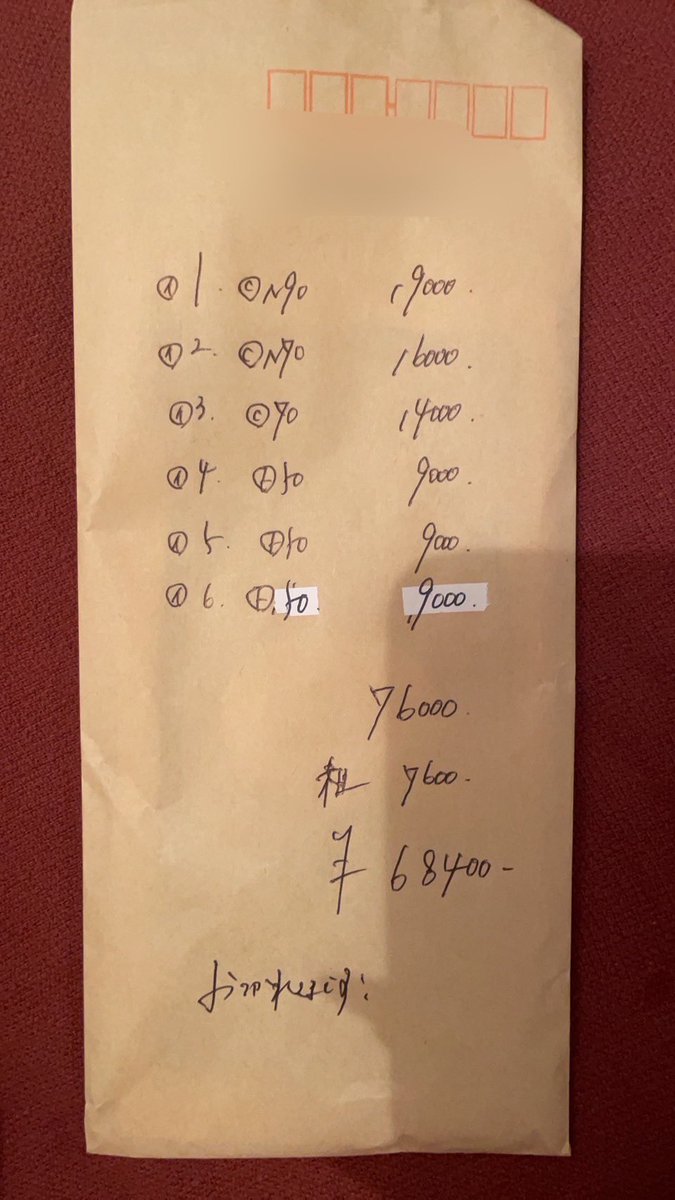 ① 1. ⓒN90 19000.
① 2. ⓒN70 16000.
① 3. ⓒ70 14000.
① 4. 50 9000.
① 5. 50 9000.
① 6. 50. 9000.
76000.
7600-
手 68400-